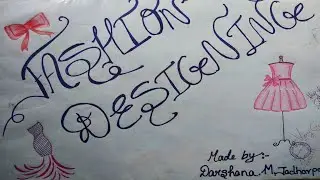 FASHION
DESIGNING
Made by:-
Darshana. M. Jadhar